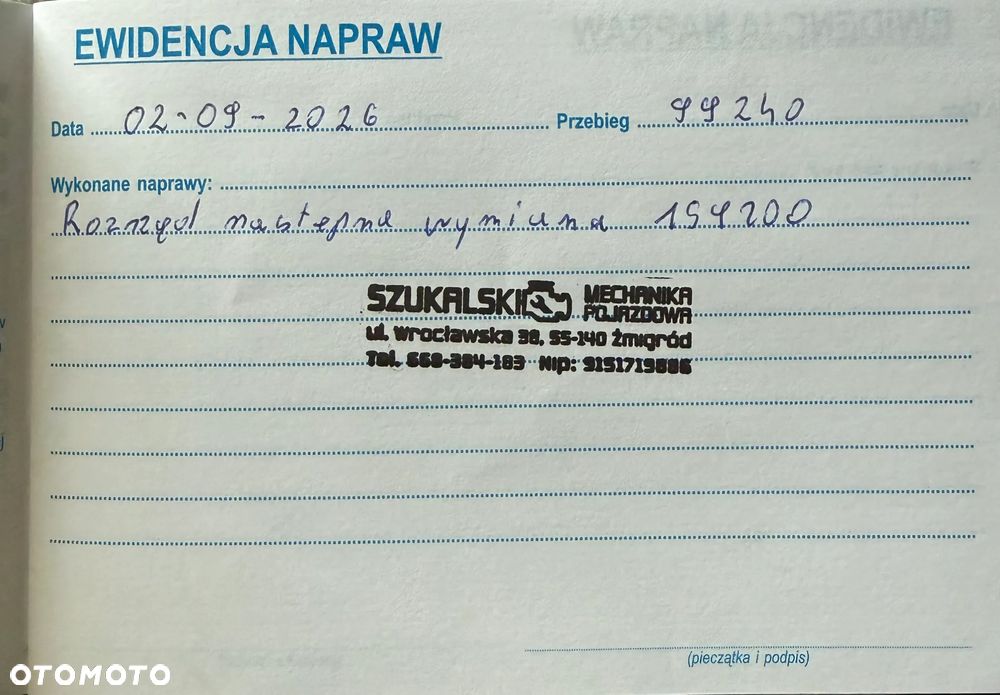 EWIDENCJA NAPRAW
Data 02-09-2026 Przebieg 99240
Wykonane naprawy:
Rozrząd następna wymiana 159200
SZUKALSKI MECHANIKA POJAZDOWA
ul. Wrocławska 38, 55-140 Żmigród
Tel. 668-384-183 Nip: 9151719886
(pieczątka i podpis)
OTOMOTO